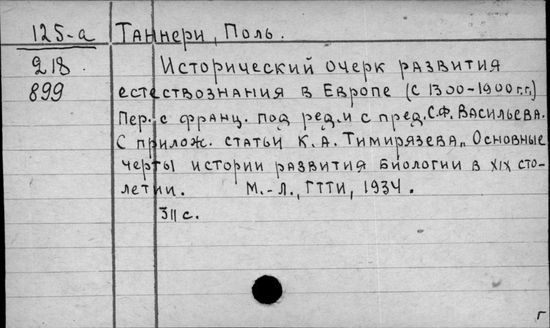 125-а Таннери, Поль.
218 Исторический очерк развития
899 естествознания в Европе (с 1300-1900 г.г.)
Пер. с франц. под ред. и с пред. С.Ф. Васильева.
С прилож. статьи К.А. Тимирязева „Основные
черты истории развития биологии в XIX сто-
летии. М.-Л., ГТТИ, 1934.
311 с.
г